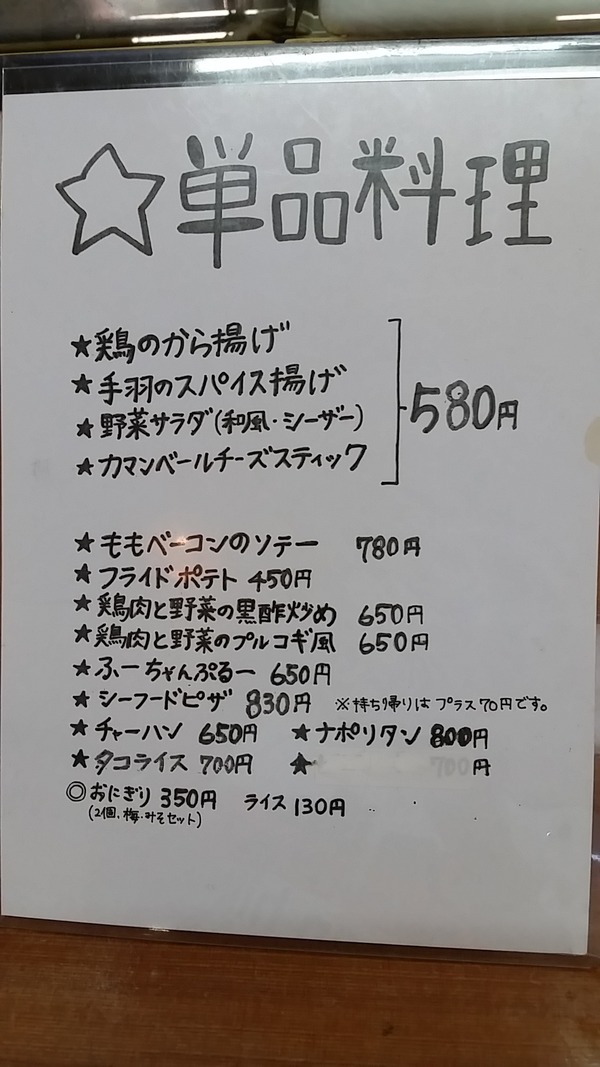 ☆単品料理
★鶏のから揚げ
★手羽のスパイス揚げ
★野菜サラダ(和風・シーザー)
★カマンベールチーズスティック
580円
★ももベーコンのソテー 780円
★フライドポテト 450円
★鶏肉と野菜の黒酢炒め 650円
★鶏肉と野菜のプルコギ風 650円
★ふーちゃんぷるー 650円
★シーフードピザ 830円 ※持ち帰りはプラス70円です。
★チャーハン 650円 ★ナポリタン 800円
★タコライス 700円 ★ 700円
◎おにぎり 350円 ライス 130円
(2個、梅・みそセット)